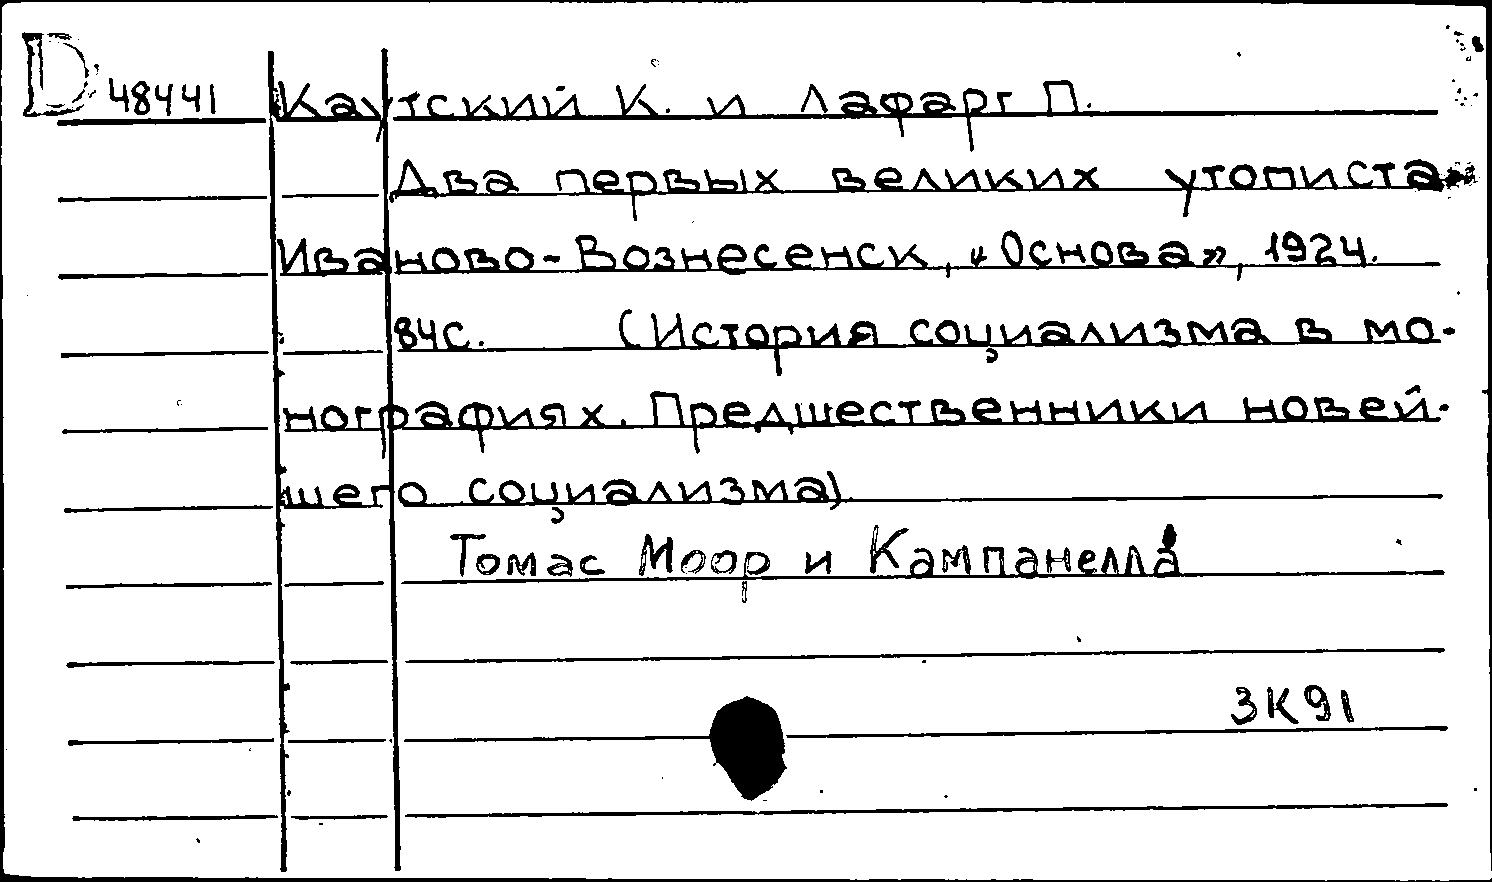 D 48441 Каутский К. и Лафарг П.
Два первых великих утописта
Иваново-Вознесенск, «Основа», 1924.
84с. (История социализма в мо-
нографиях. Предшественники новей-
шего социализма)
Томас Моор и Кампанелла
3К91